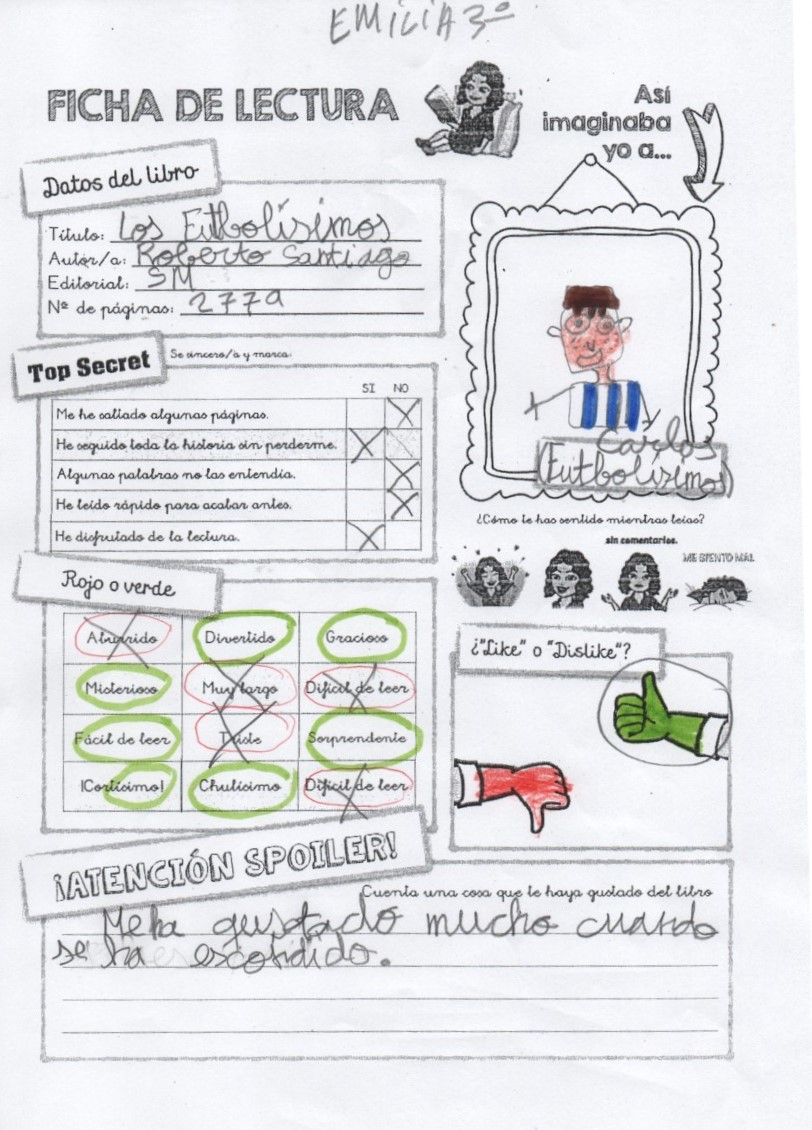 EMILIA 3º
FICHA DE LECTURA
Así
imaginaba
yo a...
Datos del libro
Título: Los Futbolísimos
Autor/a: Roberto Santiago
Editorial: SM
Nº de páginas: 277a
Carlos
(Futbolísimos)
Top Secret
Se sincero/a y marca:
SI NO
Me he saltado algunas páginas.
He seguido toda la historia sin perderme.
Algunas palabras no las entendía.
He leído rápido para acabar antes.
He disfrutado de la lectura.
¿Cómo te has sentido mientras leías?
sin comentarios.
ME SIENTO MAL
Rojo o verde
Aburrido Divertido Gracioso
Misterioso Muy largo Difícil de leer
Fácil de leer Triste Sorprendente
¡Cortísimo! Chulísimo Difícil de leer
¿"Like" o "Dislike"?
¡ATENCIÓN SPOILER!
Cuenta una cosa que te haya gustado del libro
Me ha gustado mucho cuando
se ha escondido.